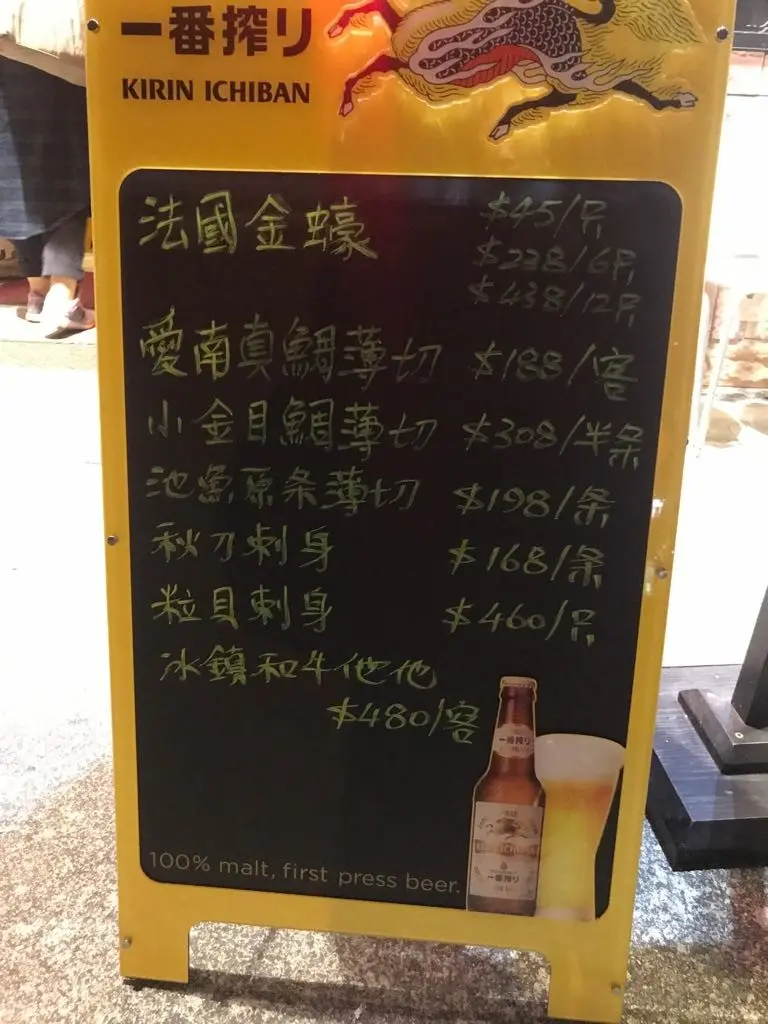 一番搾り
KIRIN ICHIBAN
法國金蠔 $45/只
$228/6只
$438/12只
愛南真鯛薄切 $188/客
小金目鯛薄切 $308/半条
池魚原条薄切 $198/条
秋刀刺身 $168/条
粒貝刺身 $460/只
冰鎮和牛他他
$480/客
一番搾り
一番搾り
100% malt, first press beer.